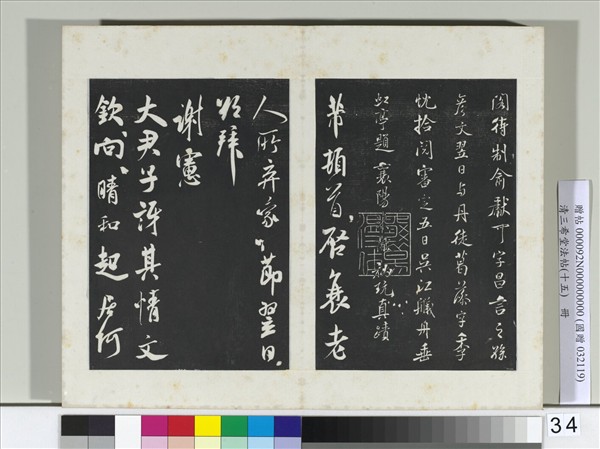 閣待制俞獻可字昌言之孫
彥文翌日与丹徒葛藻字季
忱拾閱審定五日吳江艤舟垂
虹亭題 襄陽 秘玩真蹟
芾頓首啟衰老
人所棄家〻節翌日
拜
謝憲
大尹子訝其情文
欽向晴和起居何
贈帖 000092N000000000 (國贈 032119)
清三希堂法帖(十五) 冊
34